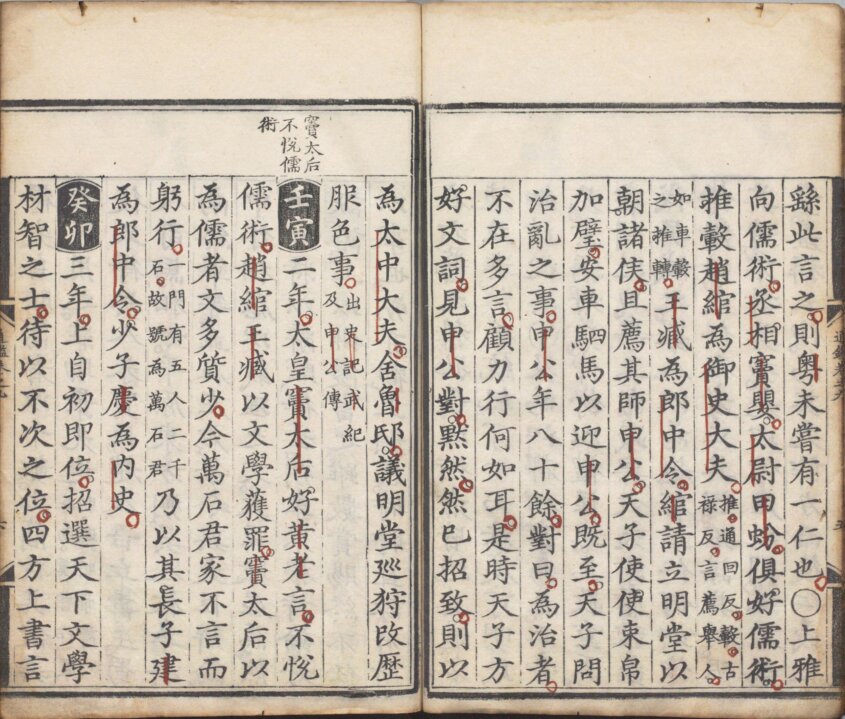 繇此言之則粤未嘗有一仁也○上雅
向儒術丞相竇嬰太尉田蚡俱好儒術
推轂趙綰為御史大夫推通回反轂古禄反言薦舉人
如車轂之推轉王臧為郎中令綰請立明堂以
朝諸侯且薦其師申公天子使使束帛
加璧安車駟馬以迎申公既至天子問
治亂之事申公年八十餘對曰為治者
不在多言顧力行何如耳是時天子方
好文詞見申公對默然然已招致則以
為太中大夫舍魯邸議明堂廵狩改歷
服色事出史記武紀及申公傳
竇太后不悅儒術
壬寅二年太皇竇太后好黃老言不悅
儒術趙綰王臧以文學獲罪竇太后以
為儒者文多質少今萬石君家不言而
躬行門有五人二千石故號為萬石君乃以其長子建
為郎中令少子慶為內史
癸卯三年上自初即位招選天下文學
材智之士待以不次之位四方上書言